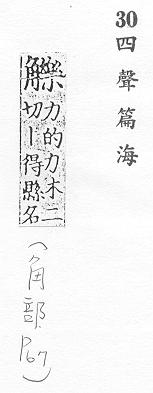 30 四聲篇海
觻
力的力木二
切丨得縣名
(角部 P67)